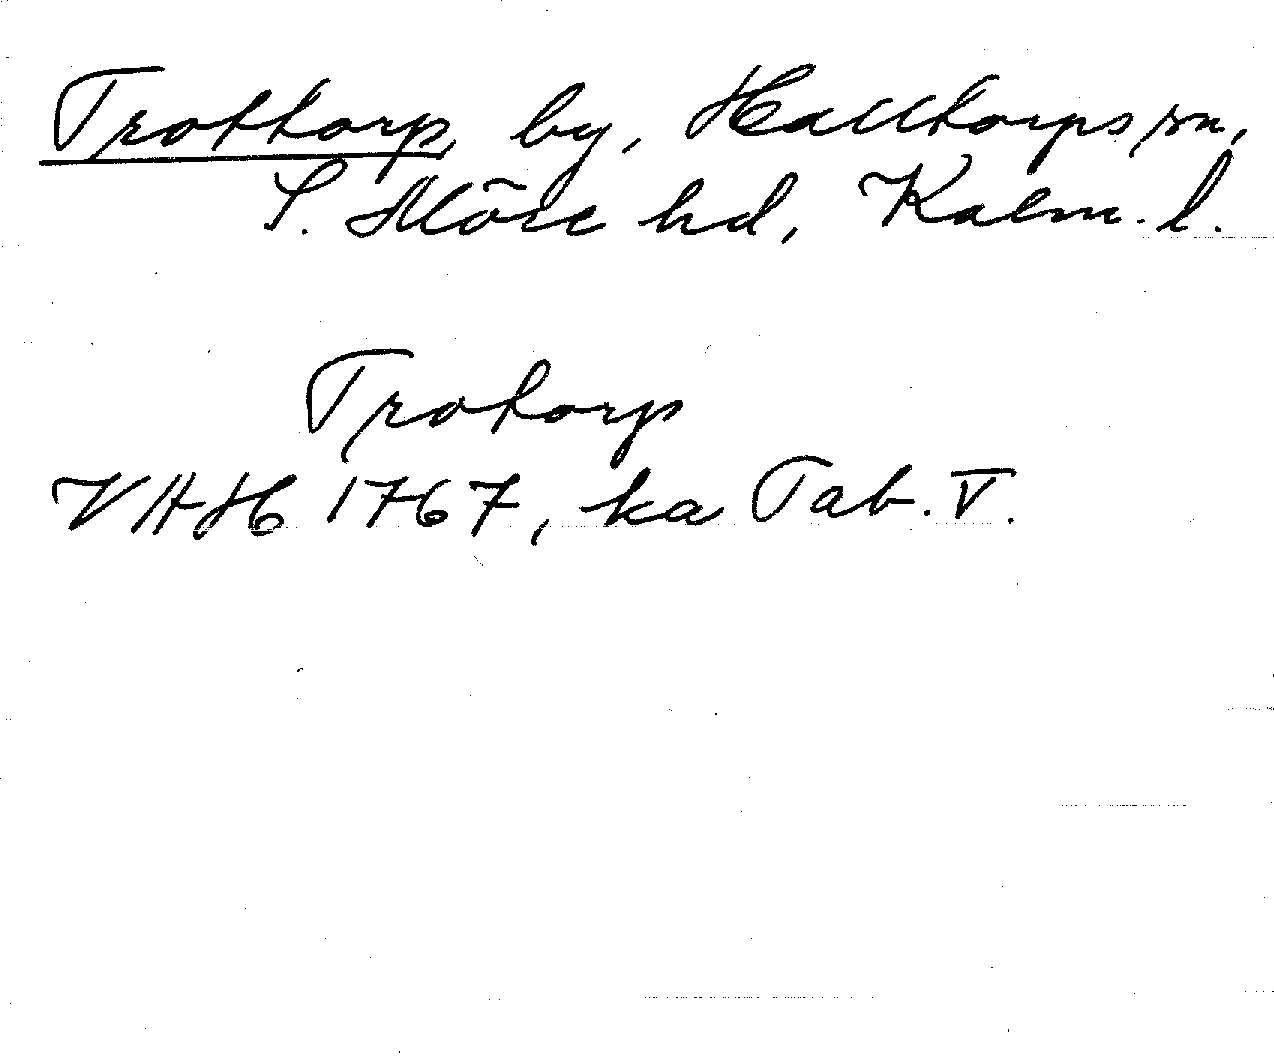 Trottorp, by, Halltorps sn,
S. Möre hd, Kalm. l.
Trotorp
VHAH 1767, ka Tab. V.